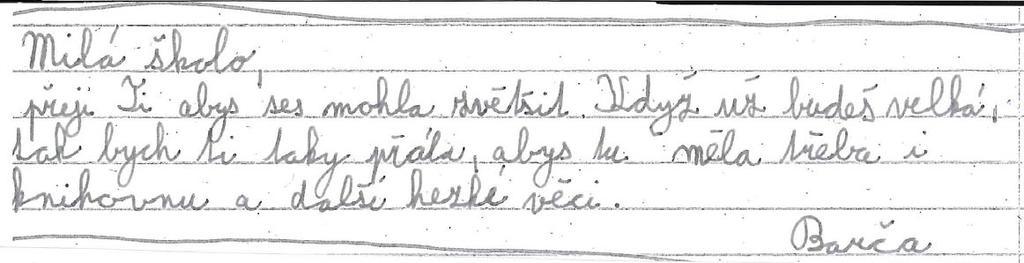 Milá školo,
přeji Ti abys ses mohla zvětšit. Když už budeš velká,
tak bych ti taky přála, abys tu měla třeba i
knihovnu a další hezké věci.
Barča